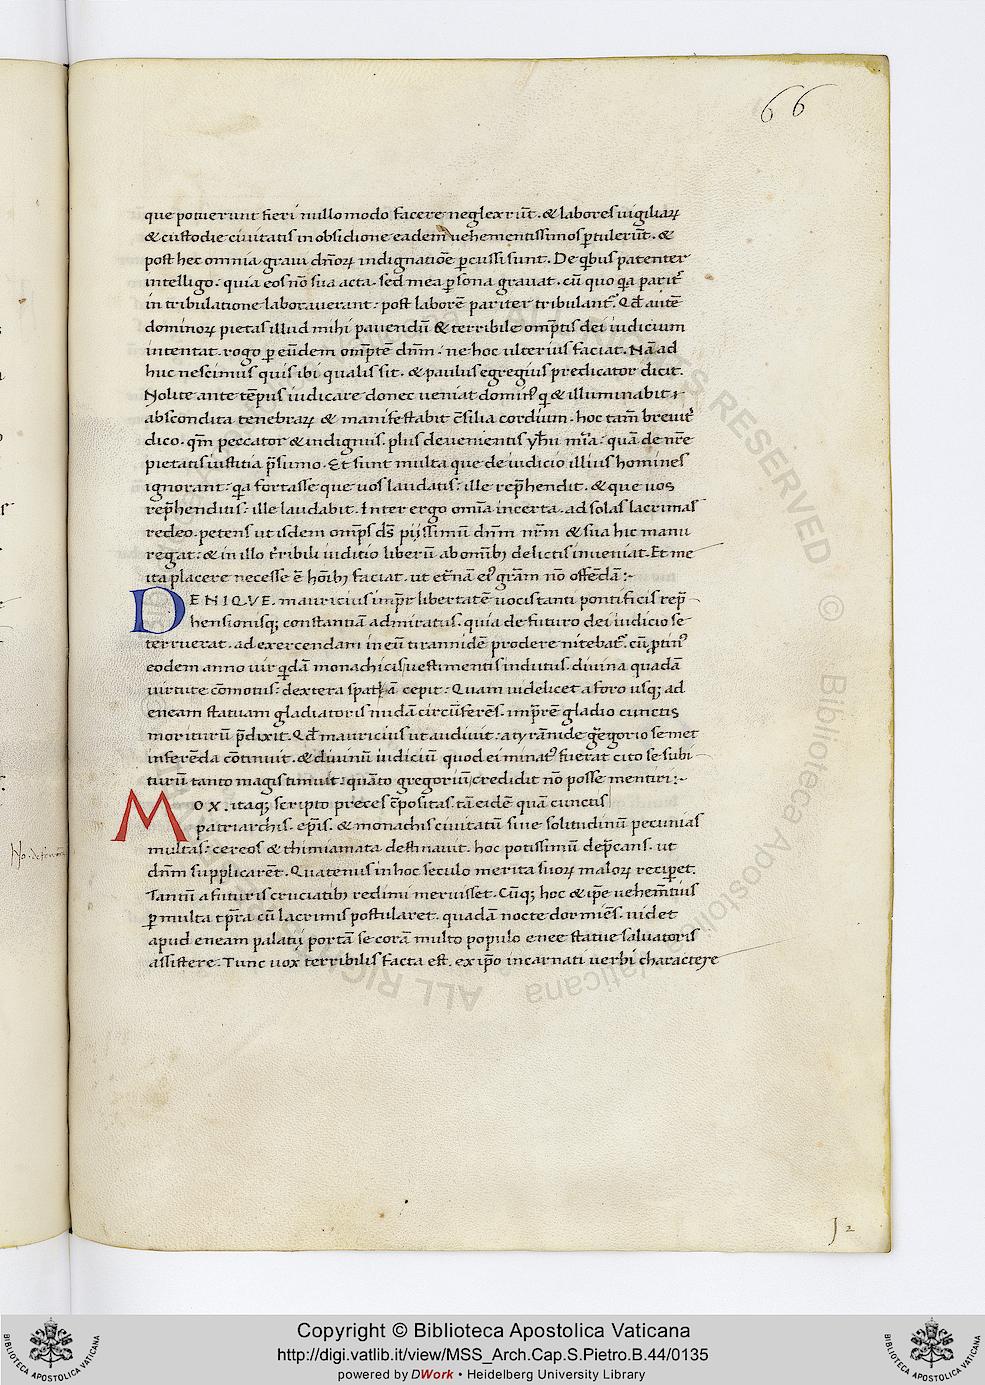 66
que potuerunt fieri nullo modo facere neglexerūt. & labores uigiliaꝝ
& custodie ciuitatis in obsidione eadem uehementissimos ꝑtulerūt. &
post hec omnia graui dn̄oꝝ indignatiōe ꝑcussi sunt. De qꝫbus patenter
intelligo. quia eos nō sua acta. sed mea ꝑsona grauat. cū quo qa parit᷑
in tribulatione laborauerant: post laborē pariter tribulant᷑. Qd̄ autē
dominoꝝ pietas illud mihi pauendū & terribile omp̄tis dei iudicium
intentat. rogo ꝑ eūdem omp̄tē dn̄m. ne hoc ulterius faciat. Nā ad
huc nescimus quis ibi qualis sit. & paulus egregius predicator dicit.
Nolite ante tēpus iudicare donec ueniat domin᷒ qi & illuminabit
abscondita tenebraꝝ & manifestabit c̄silia cordium. hoc tam̄ breuit᷑
dico. qm̄ peccator & indignus. plus de uenientis yh̄u mīa: quā de nr̄e
pietatis iustitia p̄sumo. Et sunt multa que de iudicio illius homines
ignorant: qa fortasse que uos laudatis: ille rep̄hendit. & que uos
rep̄henditis: ille laudabit. Inter ergo omīa incerta. ad solas lacrimas
redeo. petens ut isdem omp̄s ds̄ pijssimū dn̄m nr̄m & sua hic manu
regat: & in illo t̄ribili iuditio liberū ab omībꝫ delictis inueniat. Et me
ita placere necesse ē hōibꝫ faciat. ut et̄nā ei᷒ grām nō offēdā:-
DENIQVE. mauricius imp̄r libertatē uocis tanti pontificis rep̄
hensionisqꝫ constantiā admiratus. quia de futuro dei iudicio se
terruerat. ad exercendam in eū tirannidē prodere nitebat᷑. cū ꝓtin᷒
eodem anno uir qdā monachicis uestimentis indutus. diuina quadā
uirtute cōmotus: dextera spathā cepit: Quam uidelicet a foro usqꝫ ad
eneam statuam gladiatoris nudā circūferēs. imp̄rē gladio cunctis
moriturū p̄dixit. Qd̄ mauricius ut audiuit: a tyrānide ḡregorio se met
inferēda cōtinuit. & diuinū iudiciū quod ei minat᷒ fuerat cito se subi
turū tanto magis timuit: quāto gregoriū credidit nō posse mentiri:-
MOX. itaqꝫ scripto preces c̄positas. tā eidē quā cunctis
patriarchis. ep̄is. & monachis ciuitatū siue solitudinū pecunias
multas: cereos & thimiamata destinauit. hoc potissimū dep̄cans. ut
dn̄m supplicarēt. Quatenus in hoc seculo merita suoꝝ maloꝝ reciꝑet.
Tantū a futuris cruciatibꝫ redimi meruisset. Cūqꝫ hoc & ip̄e uehem̄tius
ꝑ multa tp̄ra cū lacrimis postularet. quadā nocte dormiēs. uidet
apud eneam palatij portā se corā multo populo enee statue saluatoris
assistere. Tunc uox terribilis facta est. ex ip̄o incarnati uerbi charactere
J 2
ALL RIGHTS RESERVED © Biblioteca Apostolica Vaticana
Copyright © Biblioteca Apostolica Vaticana
http://digi.vatlib.it/view/MSS_Arch.Cap.S.Pietro.B.44/0135
powered by DWork • Heidelberg University Library
BIBLIOTECA APOSTOLICA VATICANA
BIBLIOTECA APOSTOLICA VATICANA